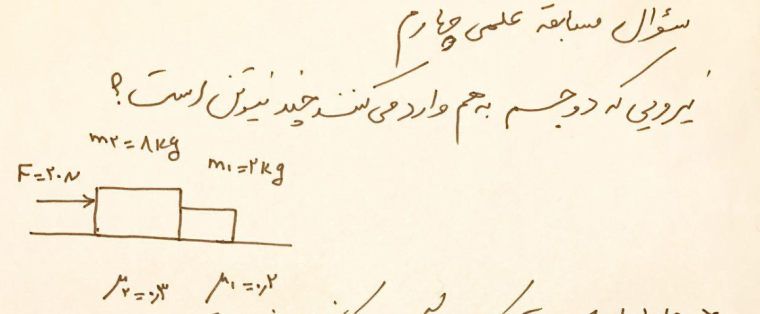 سؤال مسابقه علمی چهارم
نیرویی که دو جسم به هم وارد می‌کنند چند نیوتن است؟
m۲=۸kg
m۱=۲kg
F=۲۰N
μ۲=۰٫۳ μ۱=۰٫۲